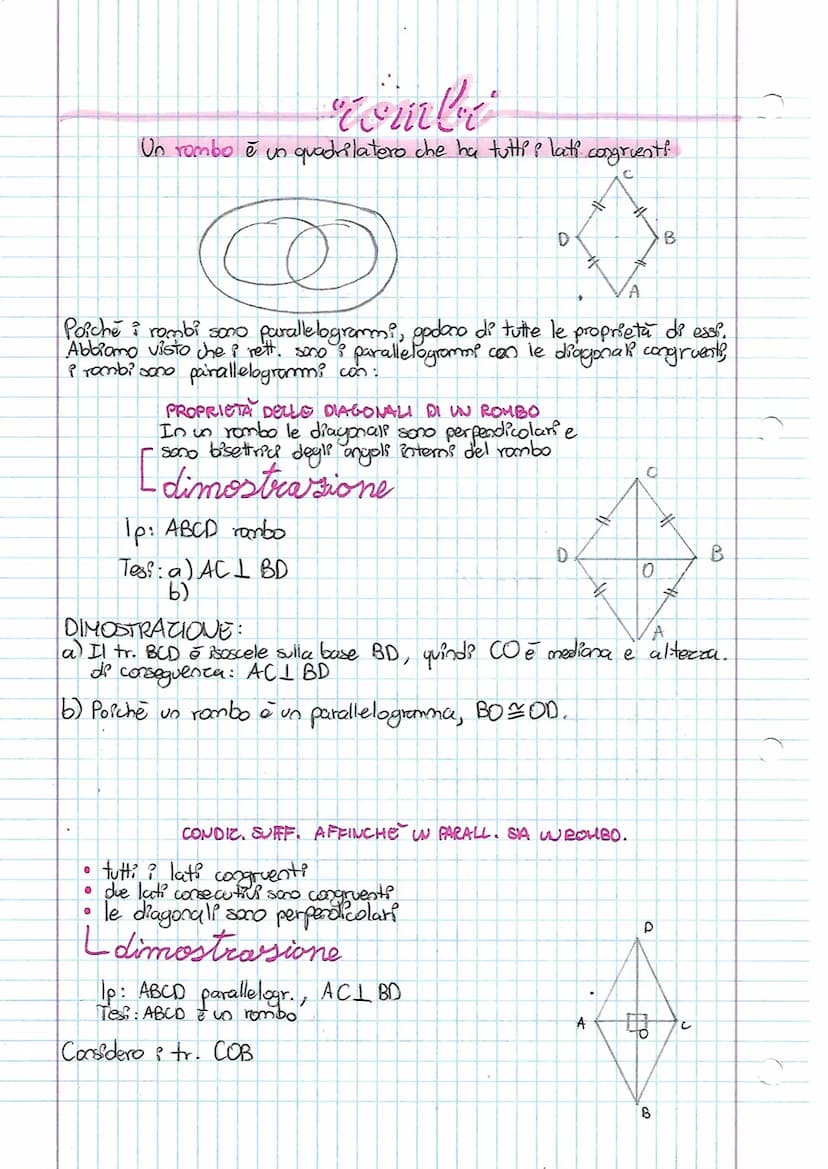 rombi
Un rombo è un quadrilatero che ha tutti i lati congruenti
C
D
B
A
Poiché i rombi sono parallelogrammi, godono di tutte le proprietà di essi.
Abbiamo visto che i rett. sono i parallelogrammi con le diagonali congruenti,
i rombi sono parallelogrammi con:
PROPRIETÀ DELLE DIAGONALI DI UN ROMBO
In un rombo le diagonali sono perpendicolari e
sono bisettrici degli angoli interni del rombo
dimostrazione
C
Ip: ABCD rombo
D
B
O
Tesi: a) AC⊥BD
b)
A
DIMOSTRAZIONE:
a) Il tr. BCD è isoscele sulla base BD, quindi CO è mediana e altezza.
di conseguenza: AC⊥BD
b) Poiché un rombo è un parallelogramma, BO≅OD.
CONDIZ. SUFF. AFFINCHÉ UN PARALL. SIA UN ROMBO.
• tutti i lati congruenti
• due lati consecutivi sono congruenti
• le diagonali sono perpendicolari
dimostrazione
D
Ip: ABCD parallelogr., AC⊥BD
Tesi: ABCD è un rombo
A
O
C
Considero i tr. COB
B